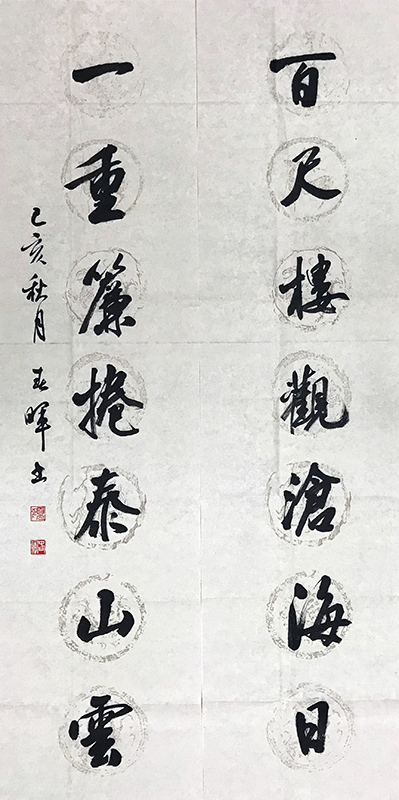 百尺樓觀滄海日
一重簾捲泰山雲
己亥秋月 春暉書